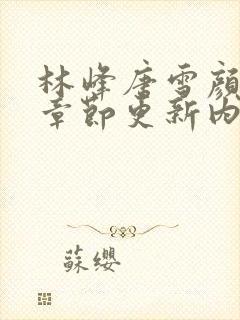 林峰唐雪顏
章節更新內
蘇纓